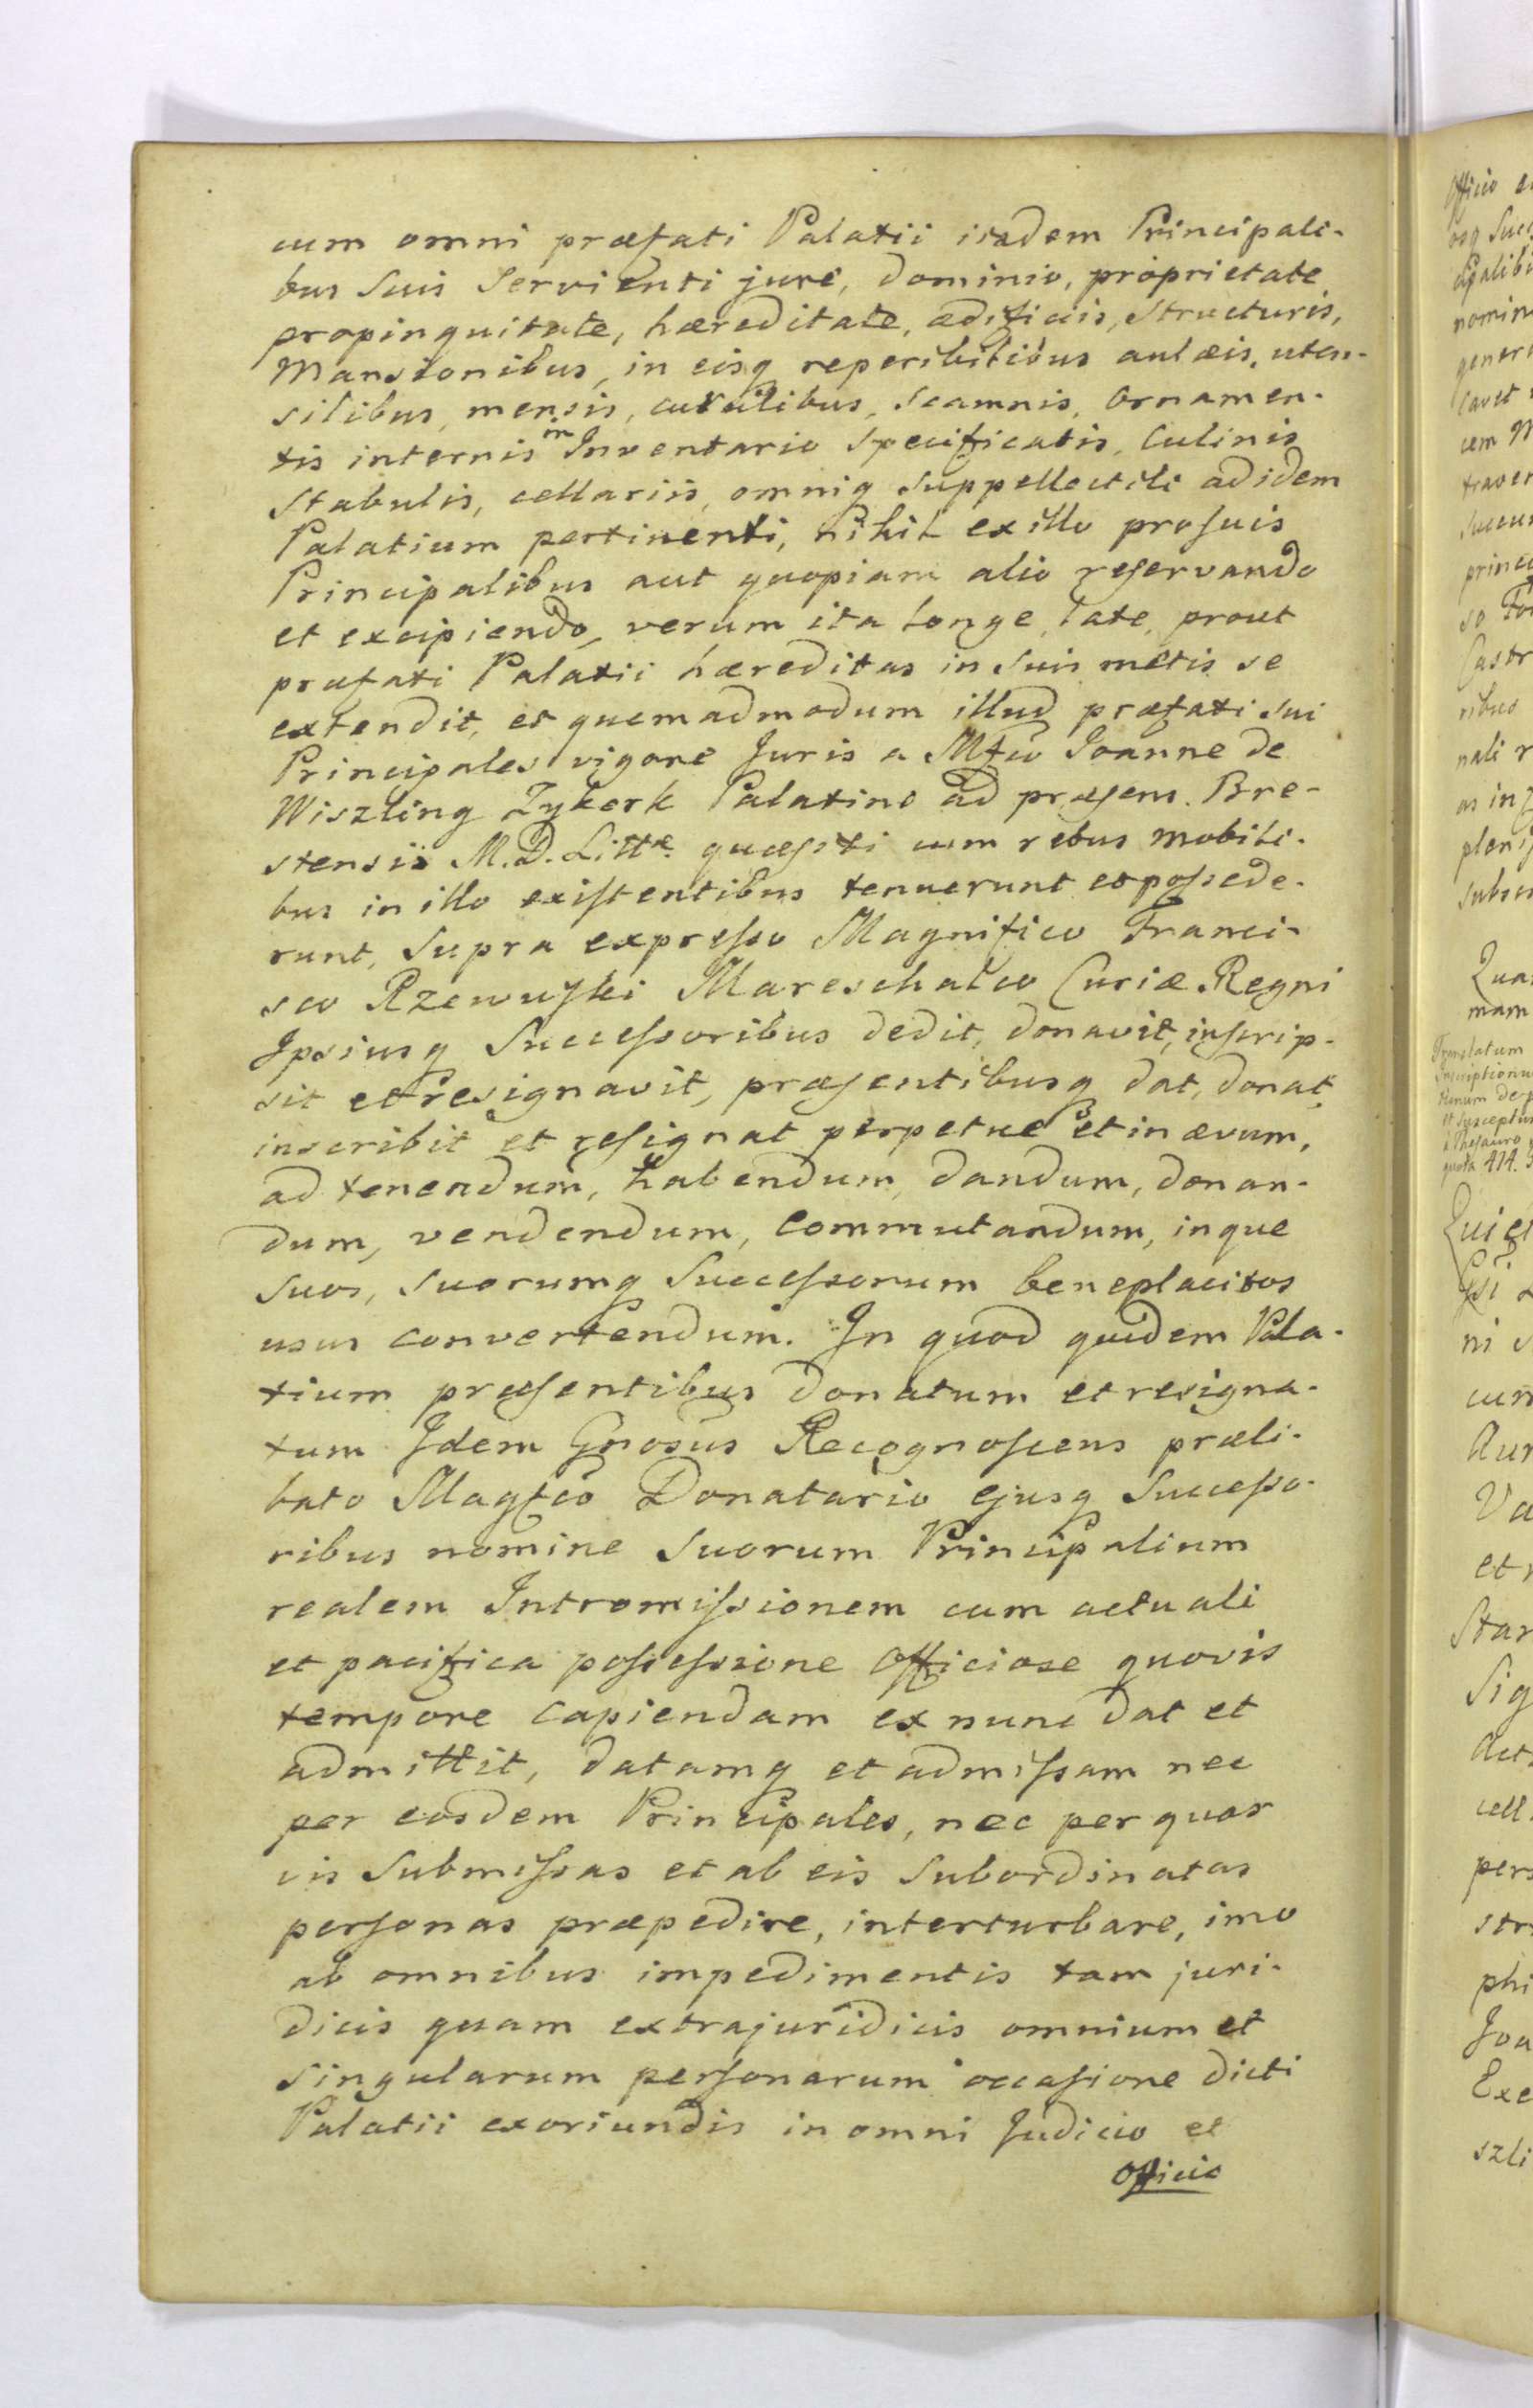 cum omni præfati Palatii iisdem Principali-
bus Suis Servienti jure, dominio, proprietate
propinquitate, hæreditate, ædificiis, Structuris,
Mansionibus, in eisq reperibilibus aulæis, uten-
silibus, mensis, curulibus, scamnis, Ornamen-
tis internis in Inventario Specificatis, Culinis
Stabulis, cellariis, omniq Suppellectili ad idem
Palatium pertinenti, nihil ex illo pro suis
Principalibus aut quopiam alio reservando
et excipiendo, verum ita longe, late, prout
præfati Palatii hæreditas in Suis metis se
extendit, et quemadmodum illud præfati Sui
Principales vigore Juris a Mfco Joanne de
Wiszling Zyberk Palatino ad præsens. Bre-
stensis M. D. Littæ. quæsiti cum rebus mobili-
bus in illo existentibus tenuerunt et possede-
runt, Supra expresso Magnifico Franci-
sco Rzewuski Mareschalco Curiæ Regni
Ipsiusq Successoribus dedit, donavit, inscrip-
sit et resignavit, præsentibusq dat, donat,
inscribit et resignat perpetue et in ævum,
ad tenendum, habendum, dandum, donan-
dum, vendendum, commutandum, inque
Suos, Suorumq Successorum beneplacitos
usus convertendum. In quod quidem Pala-
tium præsentibus donatum et resigna-
tum Idem Gnosus Recognoscens præli-
bato Magfco Donatario Ejusq Successo-
ribus nomine Suorum Principalium
realem Intromissionem cum actuali
et pacifica possessione Officiose quovis
tempore capiendam ex nunc dat et
admittit, datamq et admissam nec
per eosdem Principales, nec per quas
vis Submissas et ab eis Subordinatas
personas præpedire, interturbare, imo
ab omnibus impedimentis tam juri-
dicis quam extrajuridicis omnium et
singularum personarum occasione dicti
Palatii exoriundis in omni Judicio et
Officio